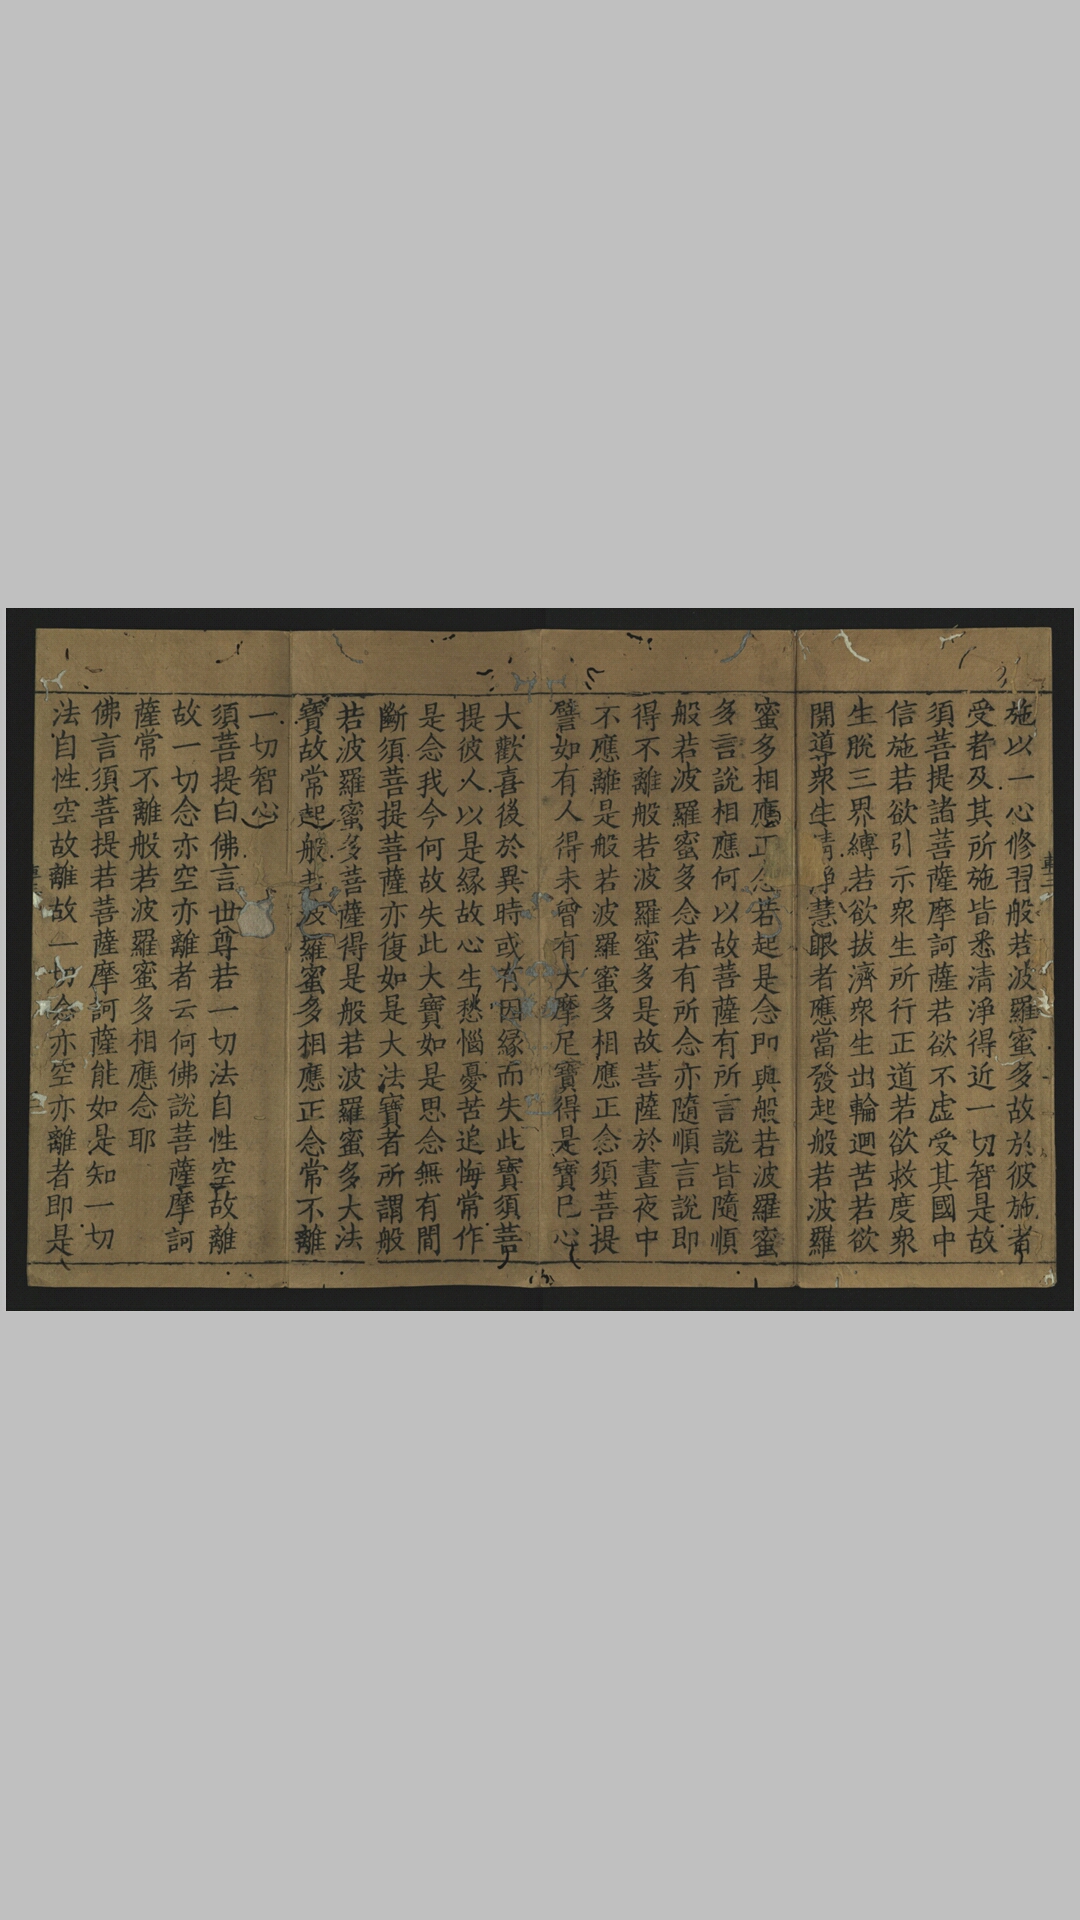 施以一心修習般若波羅蜜多故於彼施者
受者及其所施皆悉清淨得近一切智是故
須菩提諸菩薩摩訶薩若欲不虛受其國中
信施若欲引示衆生所行正道若欲救度衆
生脫三界縛若欲拔濟衆生出輪迴苦若欲
開導衆生清淨慧眼者應當發起般若波羅
蜜多相應正念若起是念即與般若波羅蜜
多言說相應何以故菩薩有所言說皆隨順
般若波羅蜜多念若有所念亦隨順言說即
得不離般若波羅蜜多是故菩薩於晝夜中
不應離是般若波羅蜜多相應正念須菩提
譬如有人得未曾有大摩尼寶得是寶已心
大歡喜後於異時或有因緣而失此寶須菩
提彼人以是緣故心生愁惱憂苦追悔常作
是念我今何故失此大寶如是思念無有間
斷須菩提菩薩亦復如是大法寶者所謂般
若波羅蜜多菩薩得是般若波羅蜜多大法
寶故常起般若波羅蜜多相應正念常不離
一切智心
須菩提白佛言世尊若一切法自性空故離
故一切念亦空亦離者云何佛說菩薩摩訶
薩常不離般若波羅蜜多相應念耶
佛言須菩提若菩薩摩訶薩能如是知一切
法自性空故離故一切念亦空亦離者即是